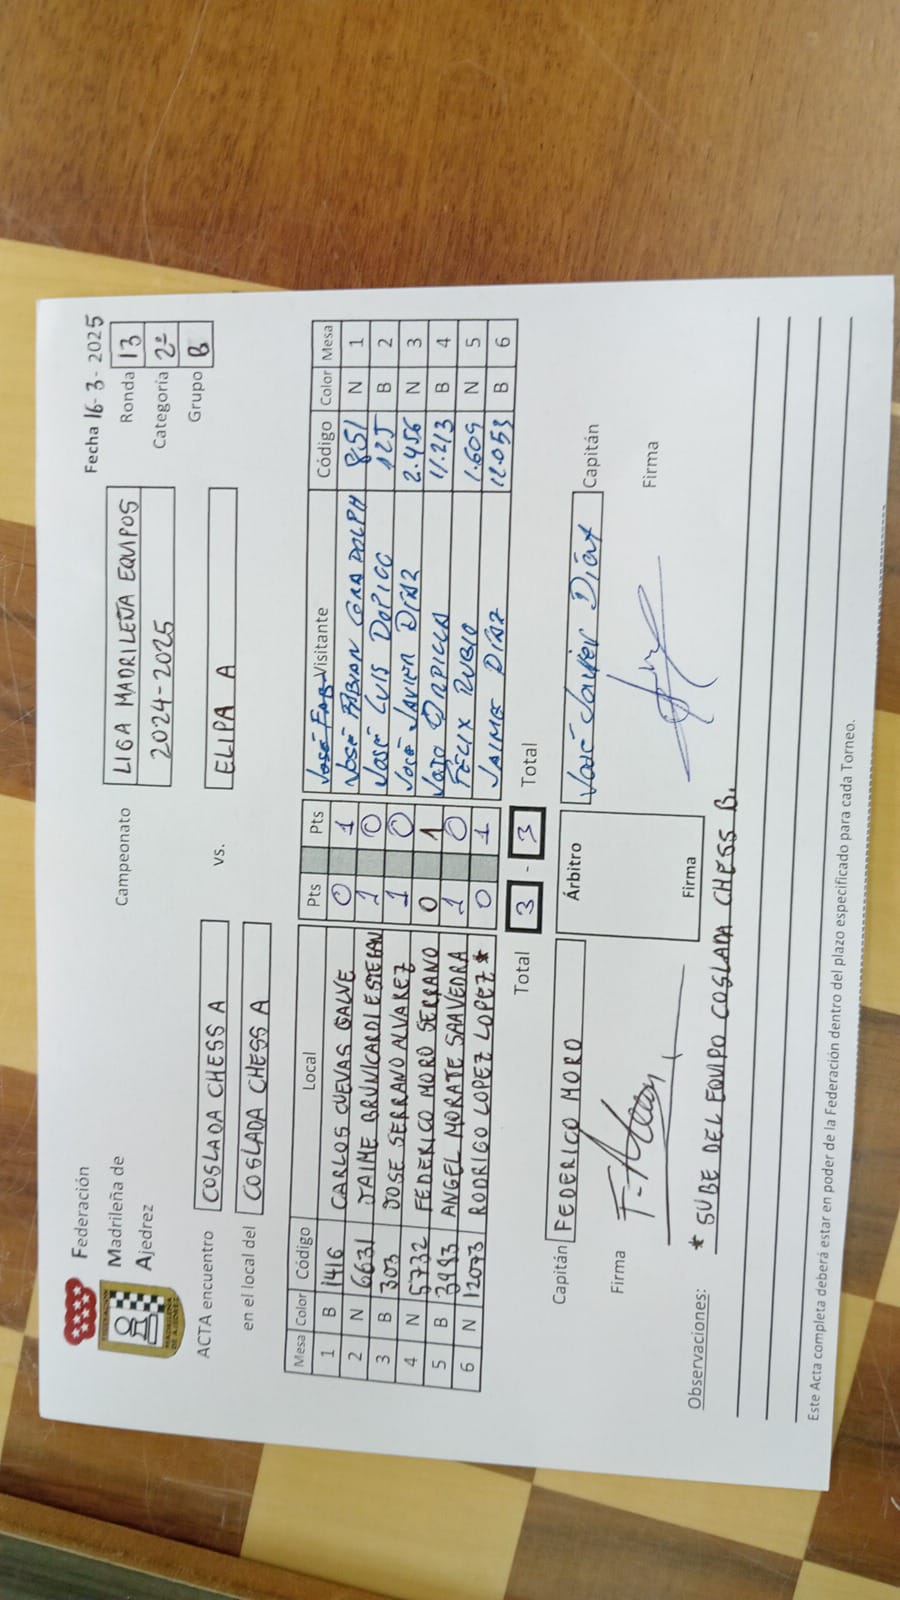 Federación
Madrileña de
Ajedrez
FEDERACION
MADRILEÑA
DE AJEDREZ
Fecha 16-3-2025
Campeonato LIGA MADRILEÑA EQUIPOS
2024-2025
Ronda 13
Categoría 2ª
Grupo B
ACTA encuentro COSLADA CHESS A vs. ELIPA A
en el local del COSLADA CHESS A
Mesa Color Código Local Pts Pts José FAB Visitante Código Color Mesa
1 B 1416 CARLOS CUEVAS GALVE 0 1 José FABIAN CORA DOLPH 851 N 1
2 N 6631 JAIME BRUNICARDI ESTEFAN 1 0 José LUIS DOPICO 125 B 2
3 B 303 JOSE SERRANO ALVAREZ 1 0 José JAVIER DÍAZ 2.456 N 3
4 N 5732 FEDERICO MORO SERRANO 0 1 ORPILLA 11.213 B 4
5 B 3983 ANGEL MORATE SAAVEDRA 1 0 FÉLIX RUBIO 1.609 N 5
6 N 12073 RODRIGO LOPEZ LOPEZ * 0 1 JAIME DÍAZ 12.053 B 6
Total 3 - 3 Total
Capitán FEDERICO MORO Árbitro José Javier Díaz Capitán
Firma Firma Firma
Observaciones: * SUBE DEL EQUIPO COSLADA CHESS B.
Este Acta completa deberá estar en poder de la Federación dentro del plazo especificado para cada Torneo.